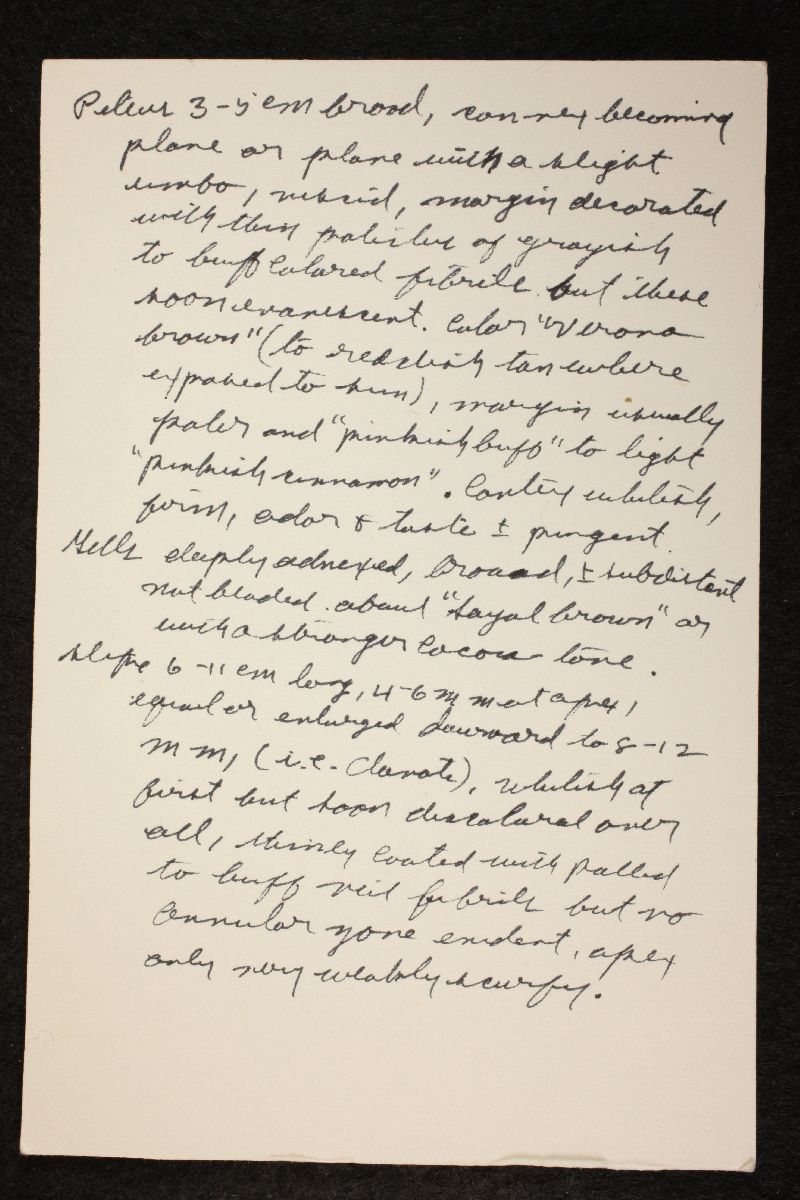 Pileus 3-5 cm broad, convex becoming
plane or plane with a slight
umbo, viscid, margin decorated
with thin patches of grayish
to buff colored fibrils but these
soon evanescent. Color "Verona
brown" (to reddish tan where
exposed to sun), margin usually
paler and "pinkish buff" to light
"pinkish cinnamon". Context whitish,
firm, odor & taste ± pungent
Gills deeply adnexed, broad, ± subdistant
not beaded. about "Sayal brown" or
with a stronger cocoa tone.
Stipe 6-11 cm long, 4-6 mm at apex,
equal or enlarged downward to 8-12
mm, (i.e. clavate), whitish at
first but soon discolored over
all, thinly coated with pallid
to buff veil fibrils but no
annular zone evident, apex
only very weakly scurfy.